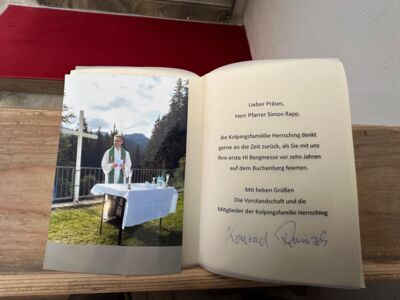 Lieber Präses,
Herr Pfarrer Simon Rapp,
die Kolpingsfamilie Herrsching denkt
gerne an die Zeit zurück, als Sie mit uns
Ihre erste Hl Bergmesse vor zehn Jahren
auf dem Buchenberg feierten.
Mit lieben Größen
Die Vorstandschaft und die
Mitglieder der Kolpingsfamilie Herrsching
Konrad